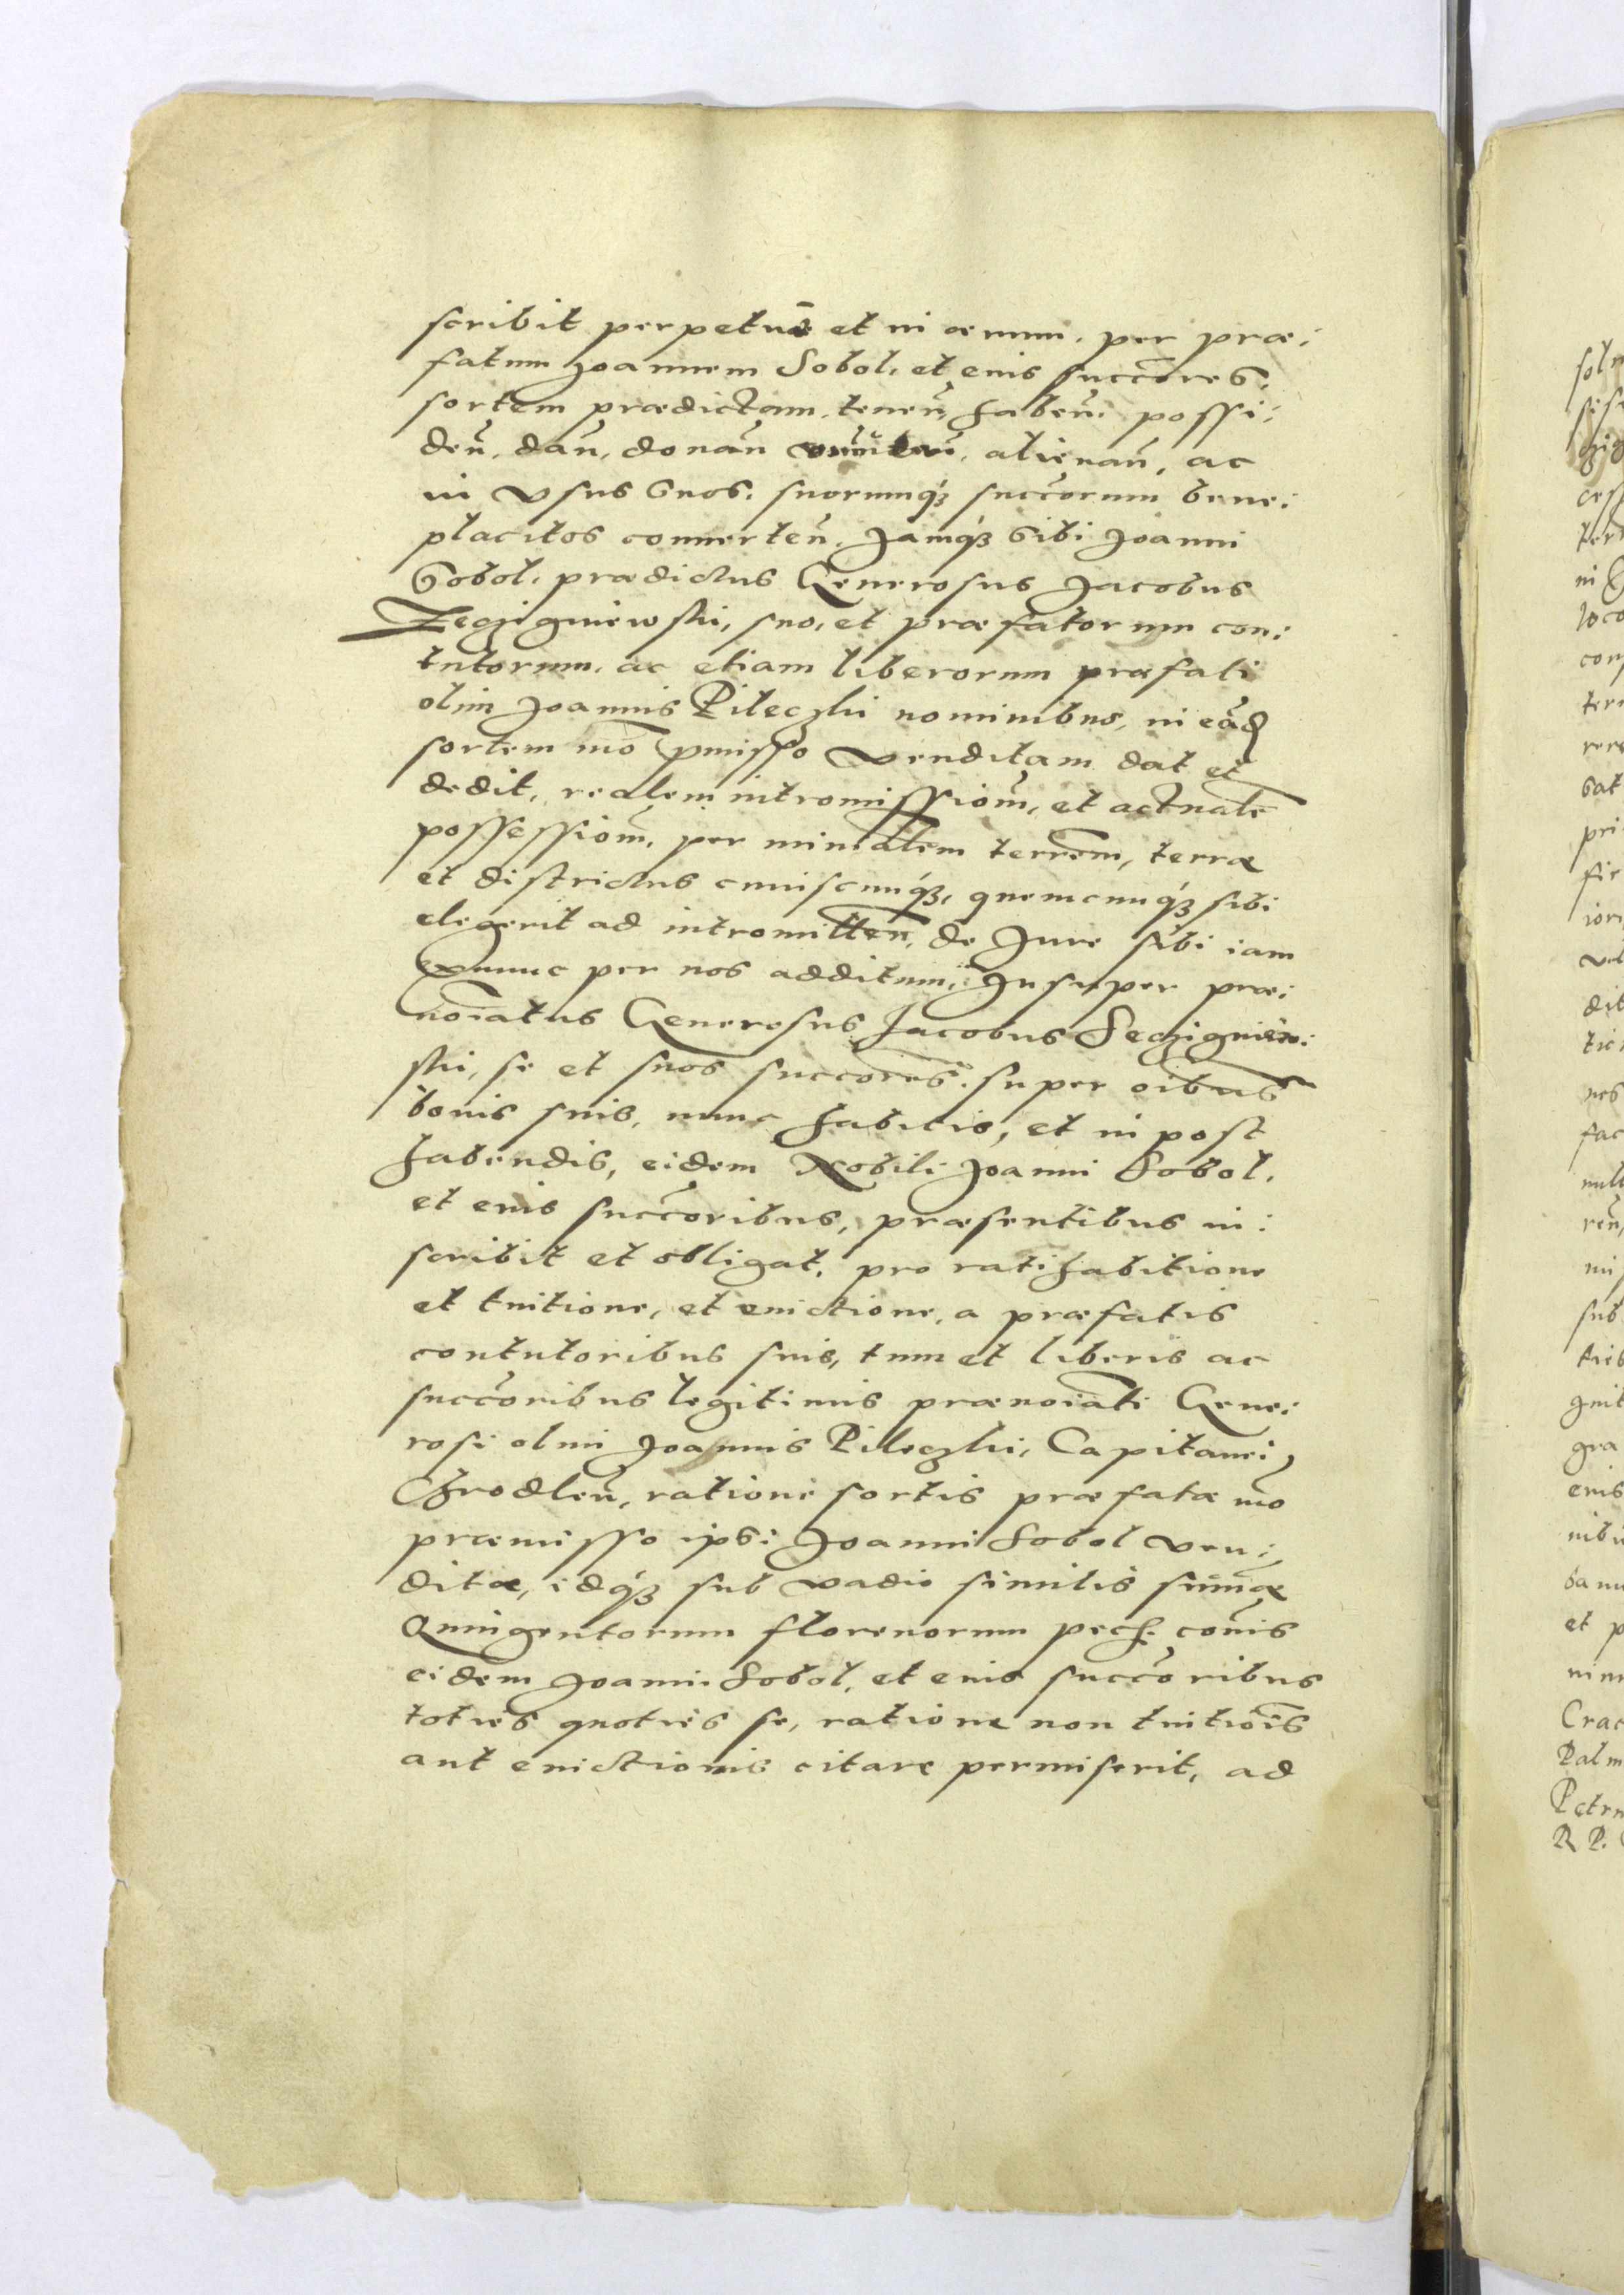 scribit perpetuè et in aeuum. per prae:
fatum Joannem Sobol. et eius succores.
sortem praedictam. tenen̄, haben̄. possi:
den̄. dan̄, donan̄ alienan̄, ac
in vsus suos. suorumq́ʒ succorum bene:
placitos conuerten̄. Jamq́ʒ sibi Joanni
Sobol. praedictus Generosus Jacobus
Zeczigniewski, suo, et praefatorum con:
tutorum. ac etiam liberorum praefati
olim Joannis Pileczki nominibus, in eād
sortem mō pmisso venditam dat et
dedit, realem intromissiom̄, et actualē
possessiom̄, per minralem terrem̄, terrae
et districtus cuiuscunq́ʒ, quemcunq́ʒ sibi
elegerit ad intromitten̄, de Jure sibi iam
exnunc per nos additum. Insuper prae:
noīatus Generosus Jacobus Seczigniew:
ski, se et suos succores. super oībus
bonis suis, nunc habitis, et in post
habendis, eidem Nobili Joanni Sobol.
et eius succoribus, praesentibus in:
scribit et obligat. pro ratihabitione
et tuitione, et euictione, a praefatis
contutoribus suis, tum et liberis ac
succoribus legitimis praenoīati Gene:
rosi olim Joannis Pileczki, Capitanei
Hrodlen̄, ratione sortis praefatae mō
praemisso ipsi Joanni Sobol ven:
ditae, idq́ʒ sub vadio similis sūmae
Quingentorum florenorum pech. com̄is
eidem Joanni Sobol, et eius succoribus
toties quoties se, ratione non tuitiōis
aut euictionis citare permiserit, ad
Crac
Palm
Petru
R P.